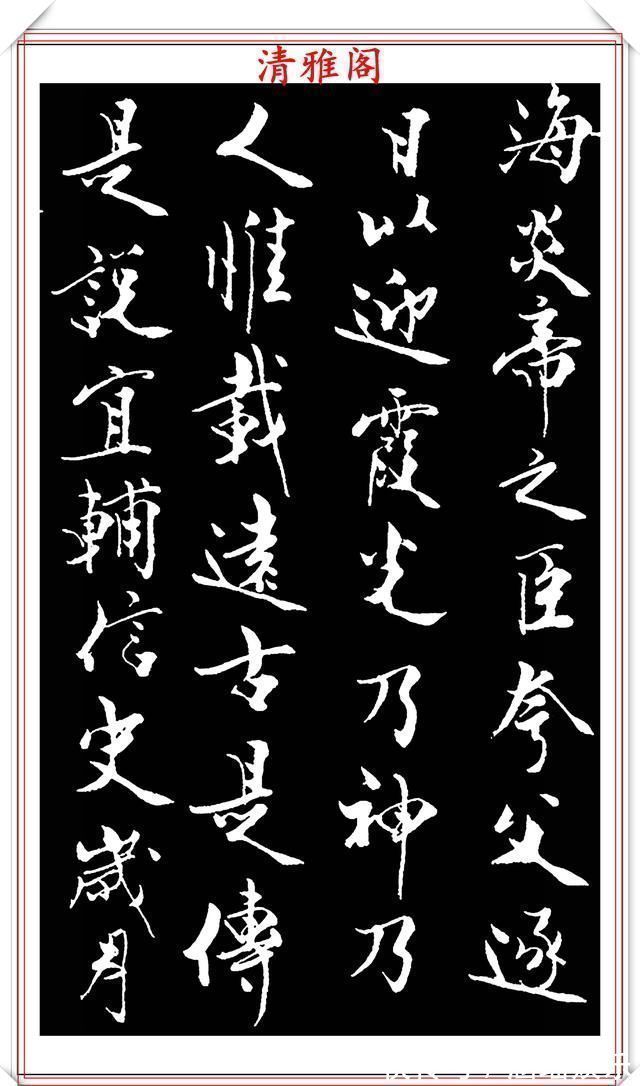 清雅阁
海炎帝之臣夸父逐
日以迎霞光乃神乃
人惟載遠古是傳
是説宜輔信史歲月